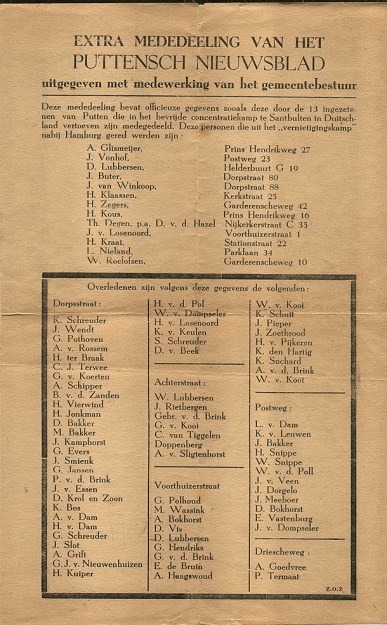 EXTRA MEDEDEELING VAN HET
PUTTENSCH NIEUWSBLAD
uitgegeven met medewerking van het gemeentebestuur
Deze mededeeling bevat officieuze gegevens zooals deze door de 13 ingezete-
nen van Putten die in het bevrijde concentratiekamp te Santbulten in Duitsch-
land vertoeven zijn medegedeeld. Deze personen die uit het „vernietigingskamp"
nabij Hamburg gered werden zijn:
A. Glismeijer, Prins Hendrikweg 27
J. Vonhof, Postweg 23
D. Lubbersen, Helderbuurt G 19
J. Buter, Dorpstraat 80
J. van Winkoop, Dorpstraat 88
H. Klaassen, Kerkstraat 25
H. Zegers, Garderenscheweg 42
H. Kous, Prins Hendrikweg 16
Th. Degen, p.a. D. v. d. Hazel Nijkerkerstraat C 35
J. v. Losenoord, Voorthuizerstraat 1
H. Kraat, Stationstraat 22
L. Nieland, Parklaan 34
W. Roelofsen, Garderenscheweg 10
Overledenen zijn volgens deze gegevens de volgenden:
Dorpsstraat:
K. Schreuder
J. Wendt
G. Pothoven
A. v. Rossem
H. ter Braak
C. J. Terwee
G. v. Koerten
A. Schipper
B. v. d. Zanden
H. Vierwind
H. Jonkman
D. Bakker
M. Bakker
J. Kamphorst
G. Evers
J. Smienk
G. Jansen
P. v. d. Brink
J. v. Essen
D. Krol en Zoon
K. Bos
A. v. Dam
H. v. Dam
G. Schreuder
J. Slot
A. Grift
G.J. v. Nieuwenhuizen
H. Kuiper
H. v. d. Pol
W. v. Dompseler
H. v. Losenoord
K. v. Keulen
S. Schreuder
D. v. Beek
Achterstraat:
W. Lubbersen
J. Rietbergen
Gebr. v. d. Brink
G. v. Koot
C. van Tiggelen
Doppenberg
A. v. Sligtenhorst
Voorthuizerstraat
G. Polhoud
M. Wassink
A. Bokhorst
D. Vis
D. Lubbersen
G. Hendriks
G. v. d. Brink
E. de Bruin
A. Haagswoud
W. v. Kooi
K. Schuit
J. Pieper
J. Zoetbrood
H. v. Pijkeren
K. den Hartig
K. Suchard
A. v. d. Brink
W. v. Koot
Postweg:
L. v. Dam
K. v. Leuwen
J. Bakker
H. Snippe
W. Snippe
W. v. d. Poll
J. v. Veen
J. Dorgelo
J. Meeboer
D. Bokhorst
E. Vastenburg
J. v. Dompseler
Driescheweg:
A. Goedvree
P. Termaat
Z.O.Z